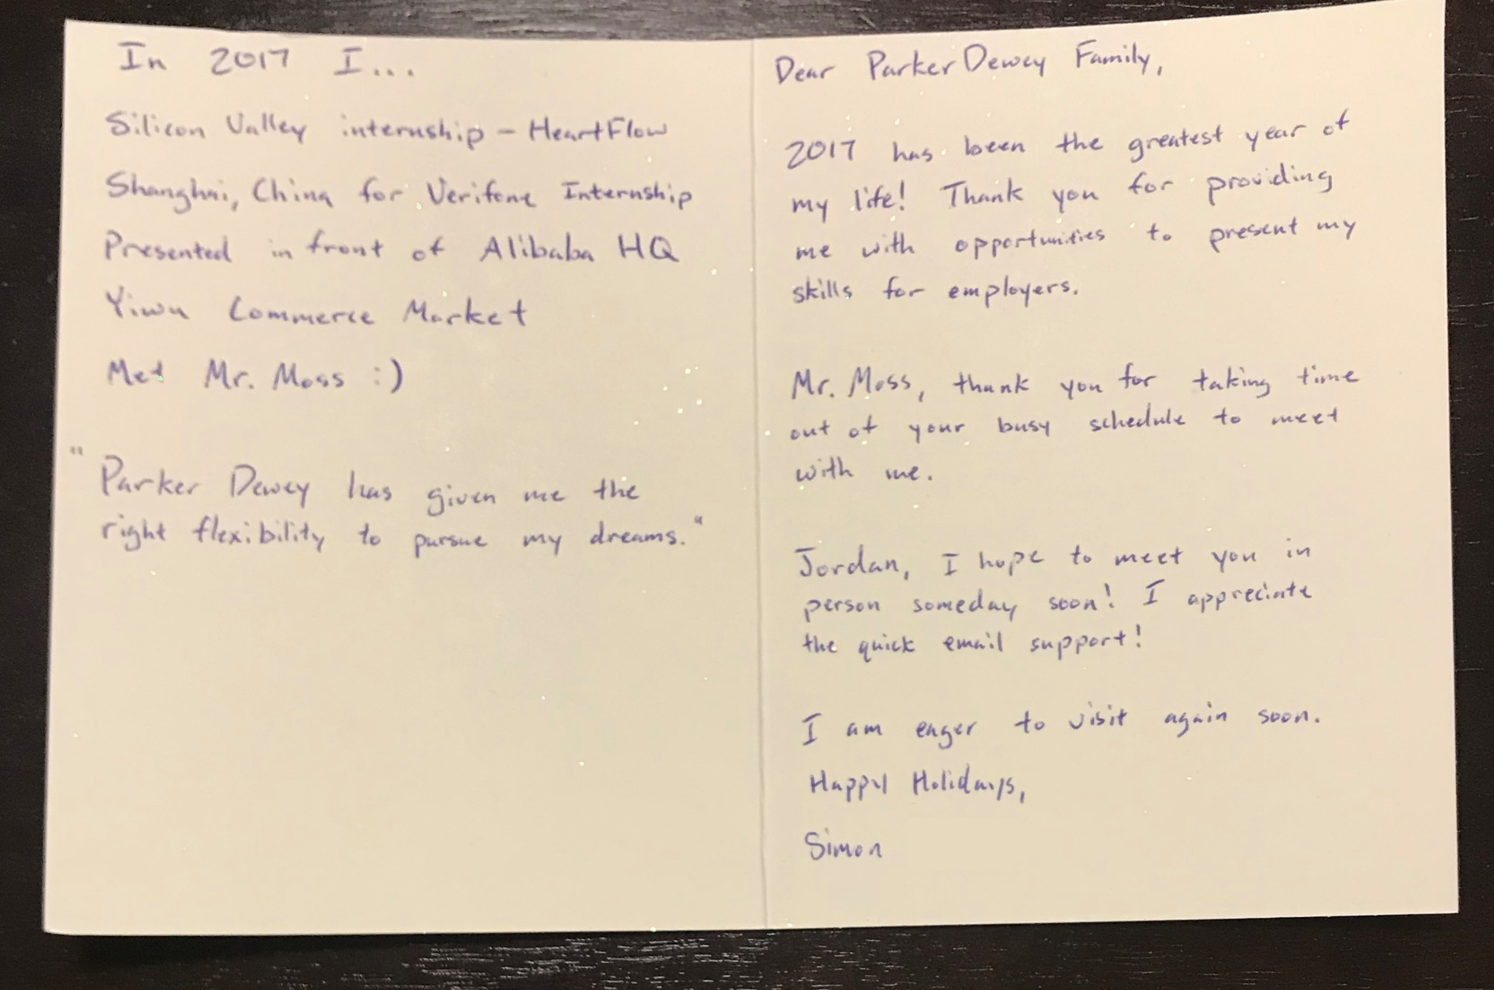 In 2017 I...
Silicon Valley internship - HeartFlow
Shanghai, China for Verifone Internship
Presented in front of Alibaba HQ
Yiwu Commerce Market
Met Mr. Moss :)
"Parker Dewey has given me the
right flexibility to pursue my dreams."
Dear Parker Dewey Family,
2017 has been the greatest year of
my life! Thank you for providing
me with opportunities to present my
skills for employers.
Mr. Moss, thank you for taking time
out of your busy schedule to meet
with me.
Jordan, I hope to meet you in
person someday soon! I appreciate
the quick email support!
I am eager to visit again soon.
Happy Holidays,
Simon